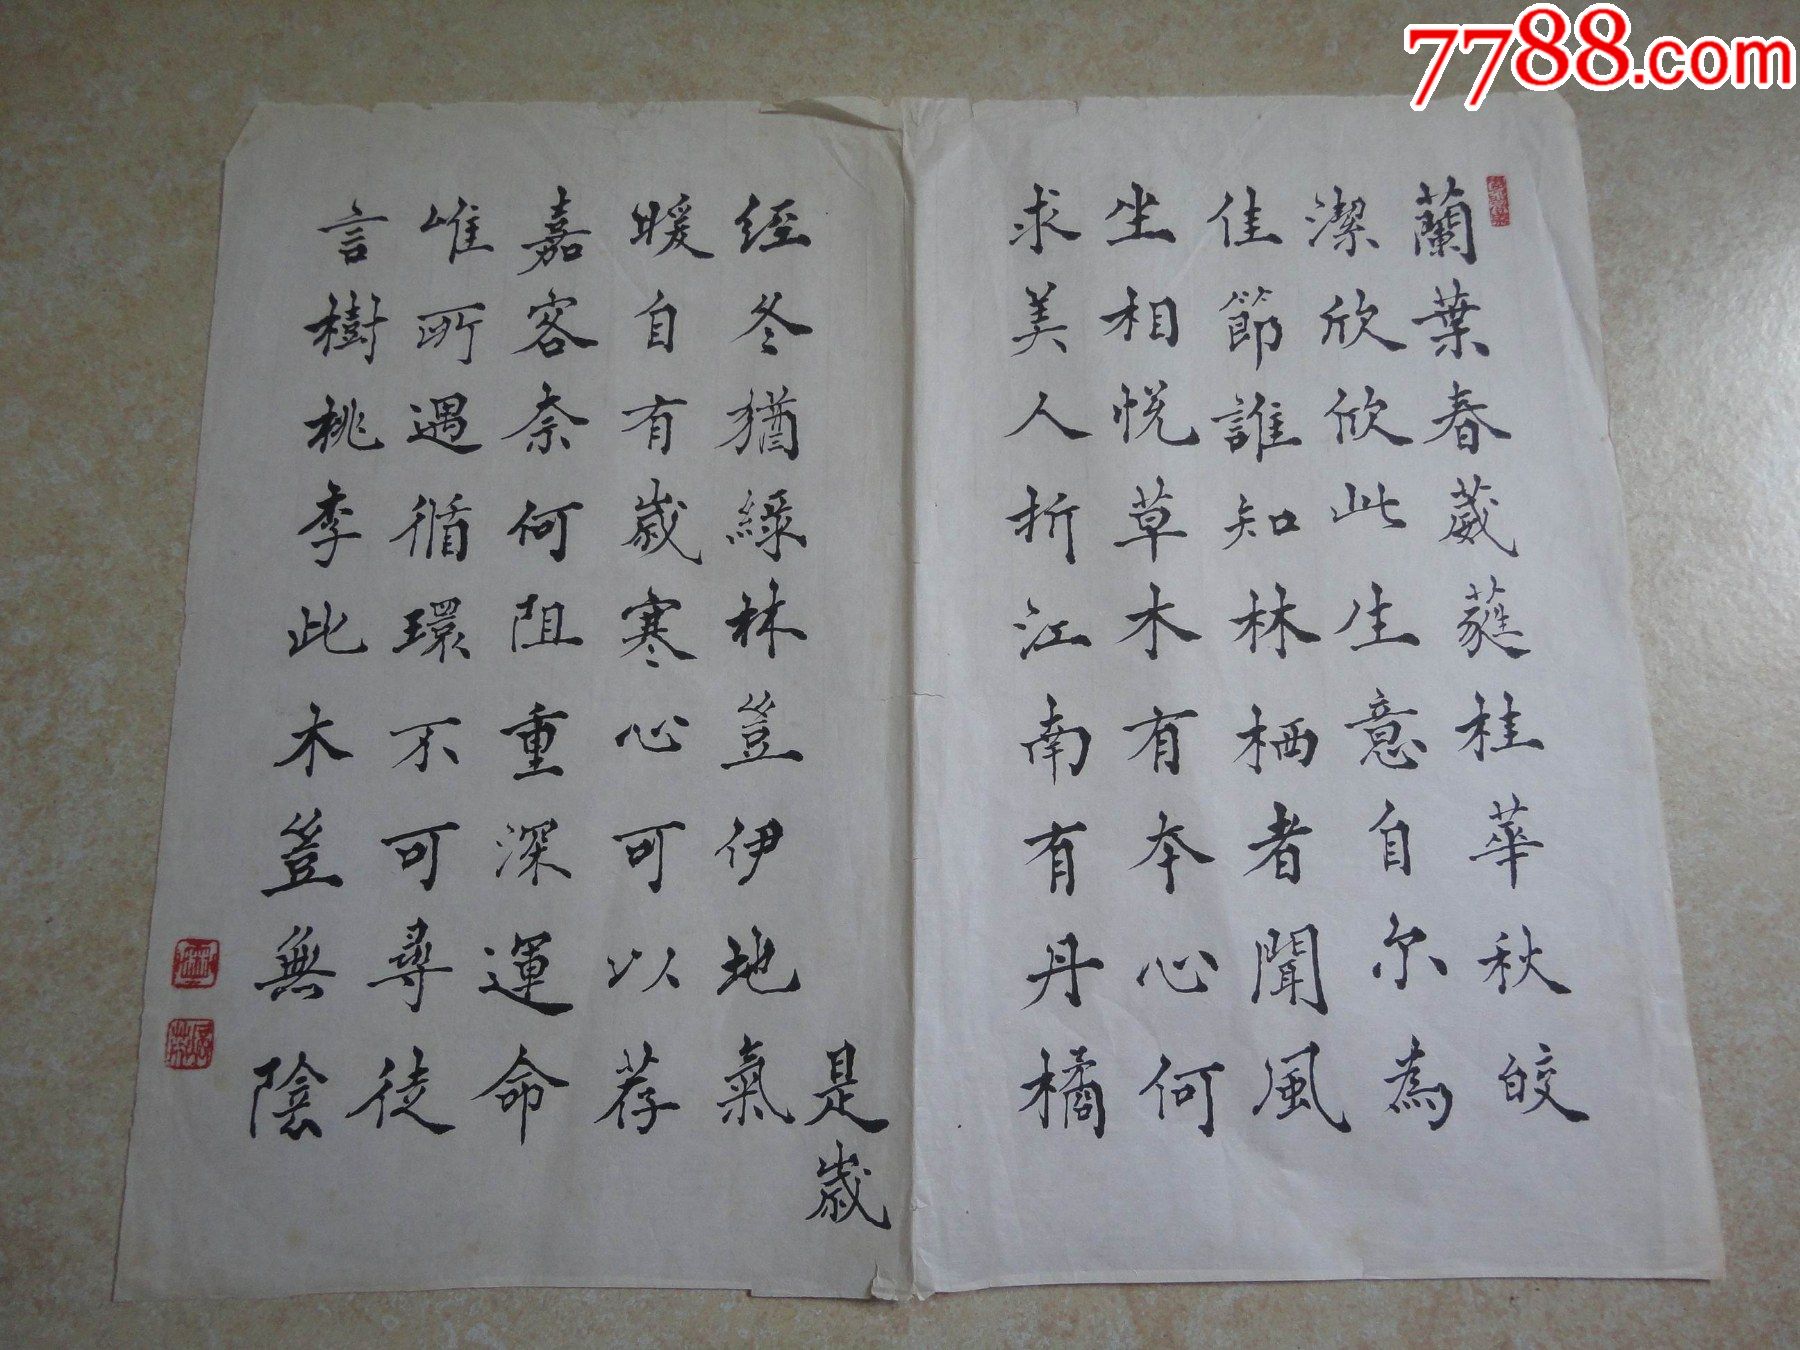 蘭葉春葳蕤桂華秋皎
潔欣欣此生意自尔為
佳節誰知林栖者聞風
坐相悅草木有本心何
求美人折江南有丹橘
是歲
經冬猶綠林豈伊地氣
暖自有歲寒心可以荐
嘉客奈何阻重深運命
唯所遇循環不可尋徒
言樹桃李此木豈無陰
7788.com